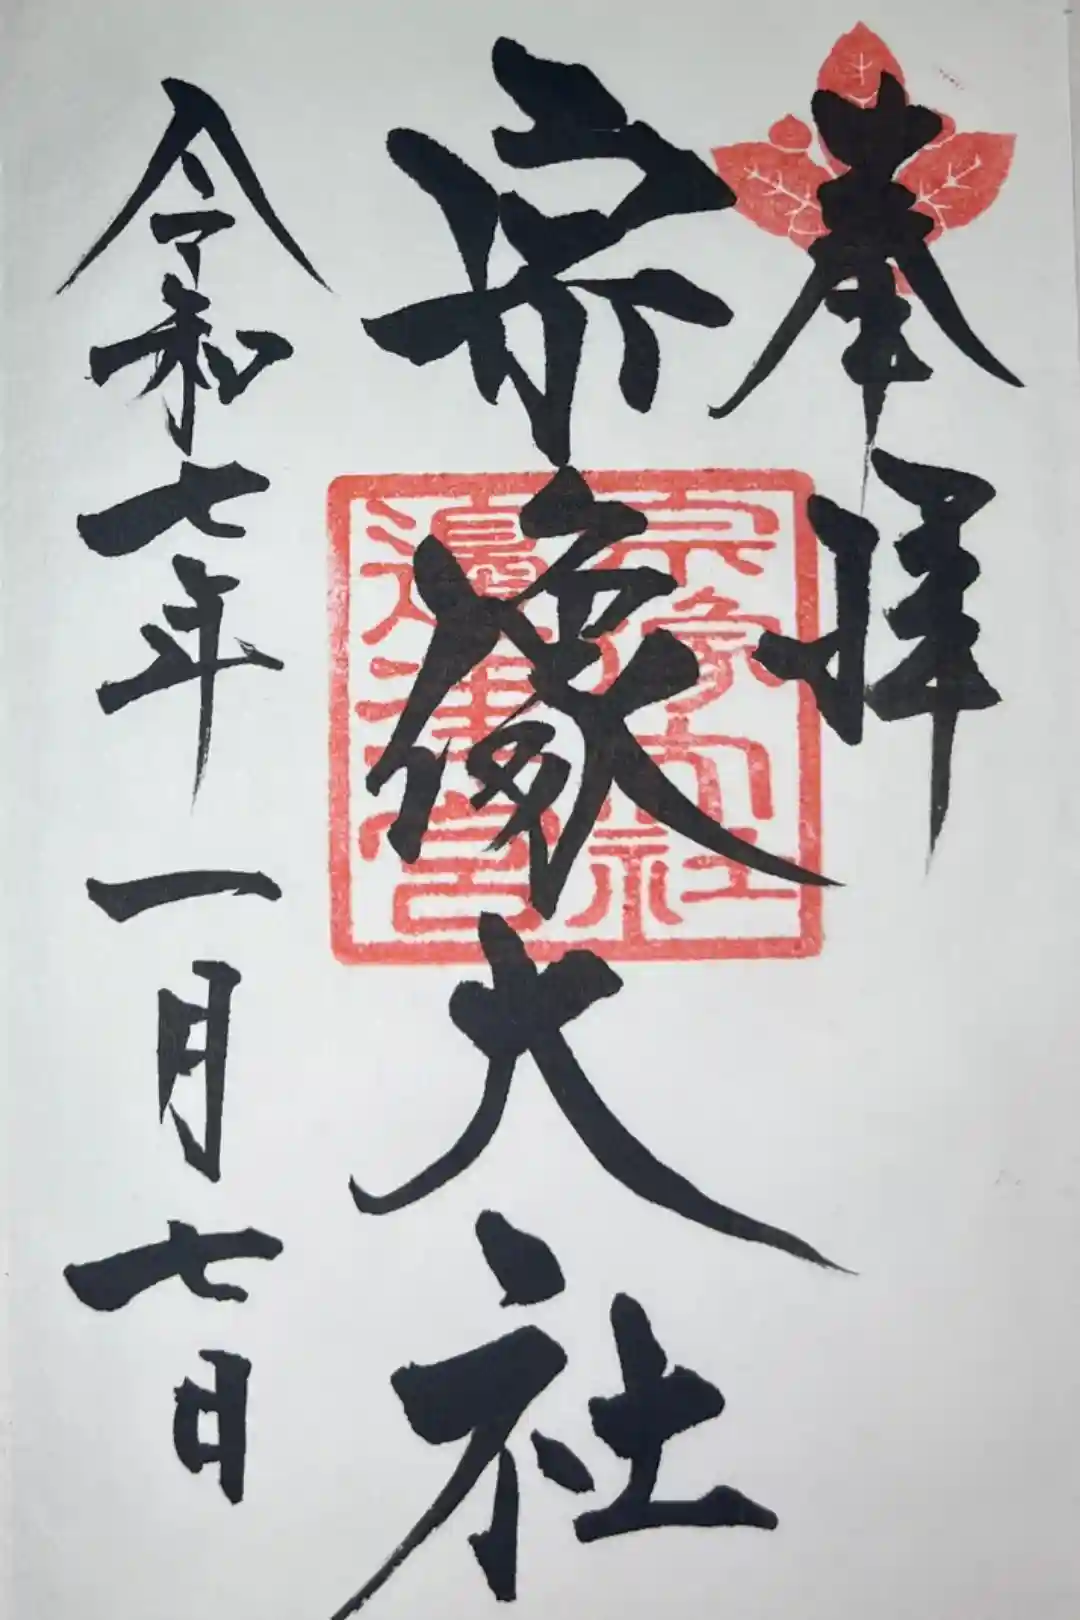 奉拝
宗像大社
宗像大社
邊津宮
令和七年一月七日